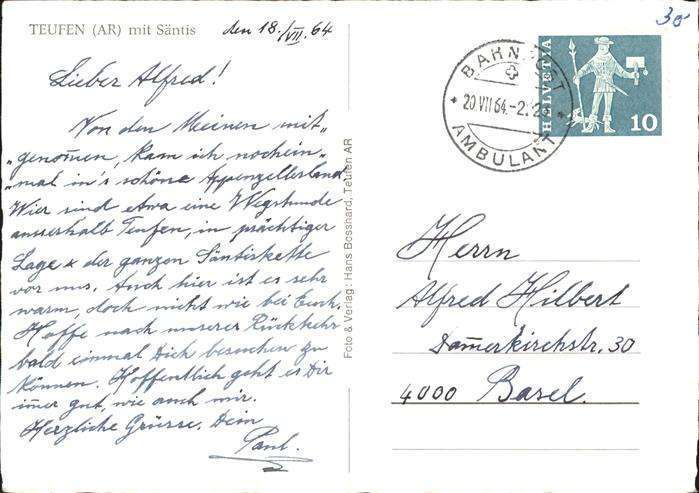 TEUFEN (AR) mit Säntis
den 18./VII. 64
Lieber Alfred!
Von den Meinen mit„
„genom̄en, kam ich nochein„
„mal in's schöne Appenzellerland
Wier sind etwa eine Wegstunde
ausserhalb Teufen, in prächtiger
Lage & der ganzen Säntiskette
vor uns. Auch hier ist es sehr
warm, doch nicht wie bei Euch,
Hoffe nach unserer Rückkehr
bald einmal Dich besuchen zu
können. Hoffentlich geht es Dir
im̄er gut, wie auch mir.
Herzliche Grüsse. Dein
Paul.
Foto & Verlag: Hans Bosshard, Teufen AR
30
BAHNPOST
20 VII 64-2.2
AMBULANT
HELVETIA
10
Herrn
Alfred Hilbert
Dam̄erkirchstr. 30
4000 Basel.